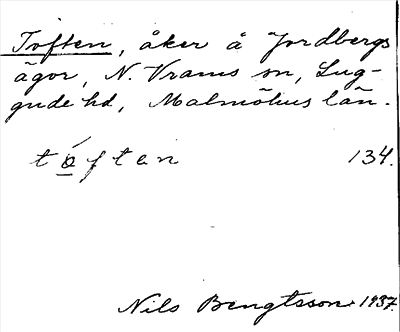 Toften, åker å Jordbergs
ägor, N. Vrams sn, Lug-
gude hd, Malmöhus län.
tóften 134.
Nils Bengtsson 1937.